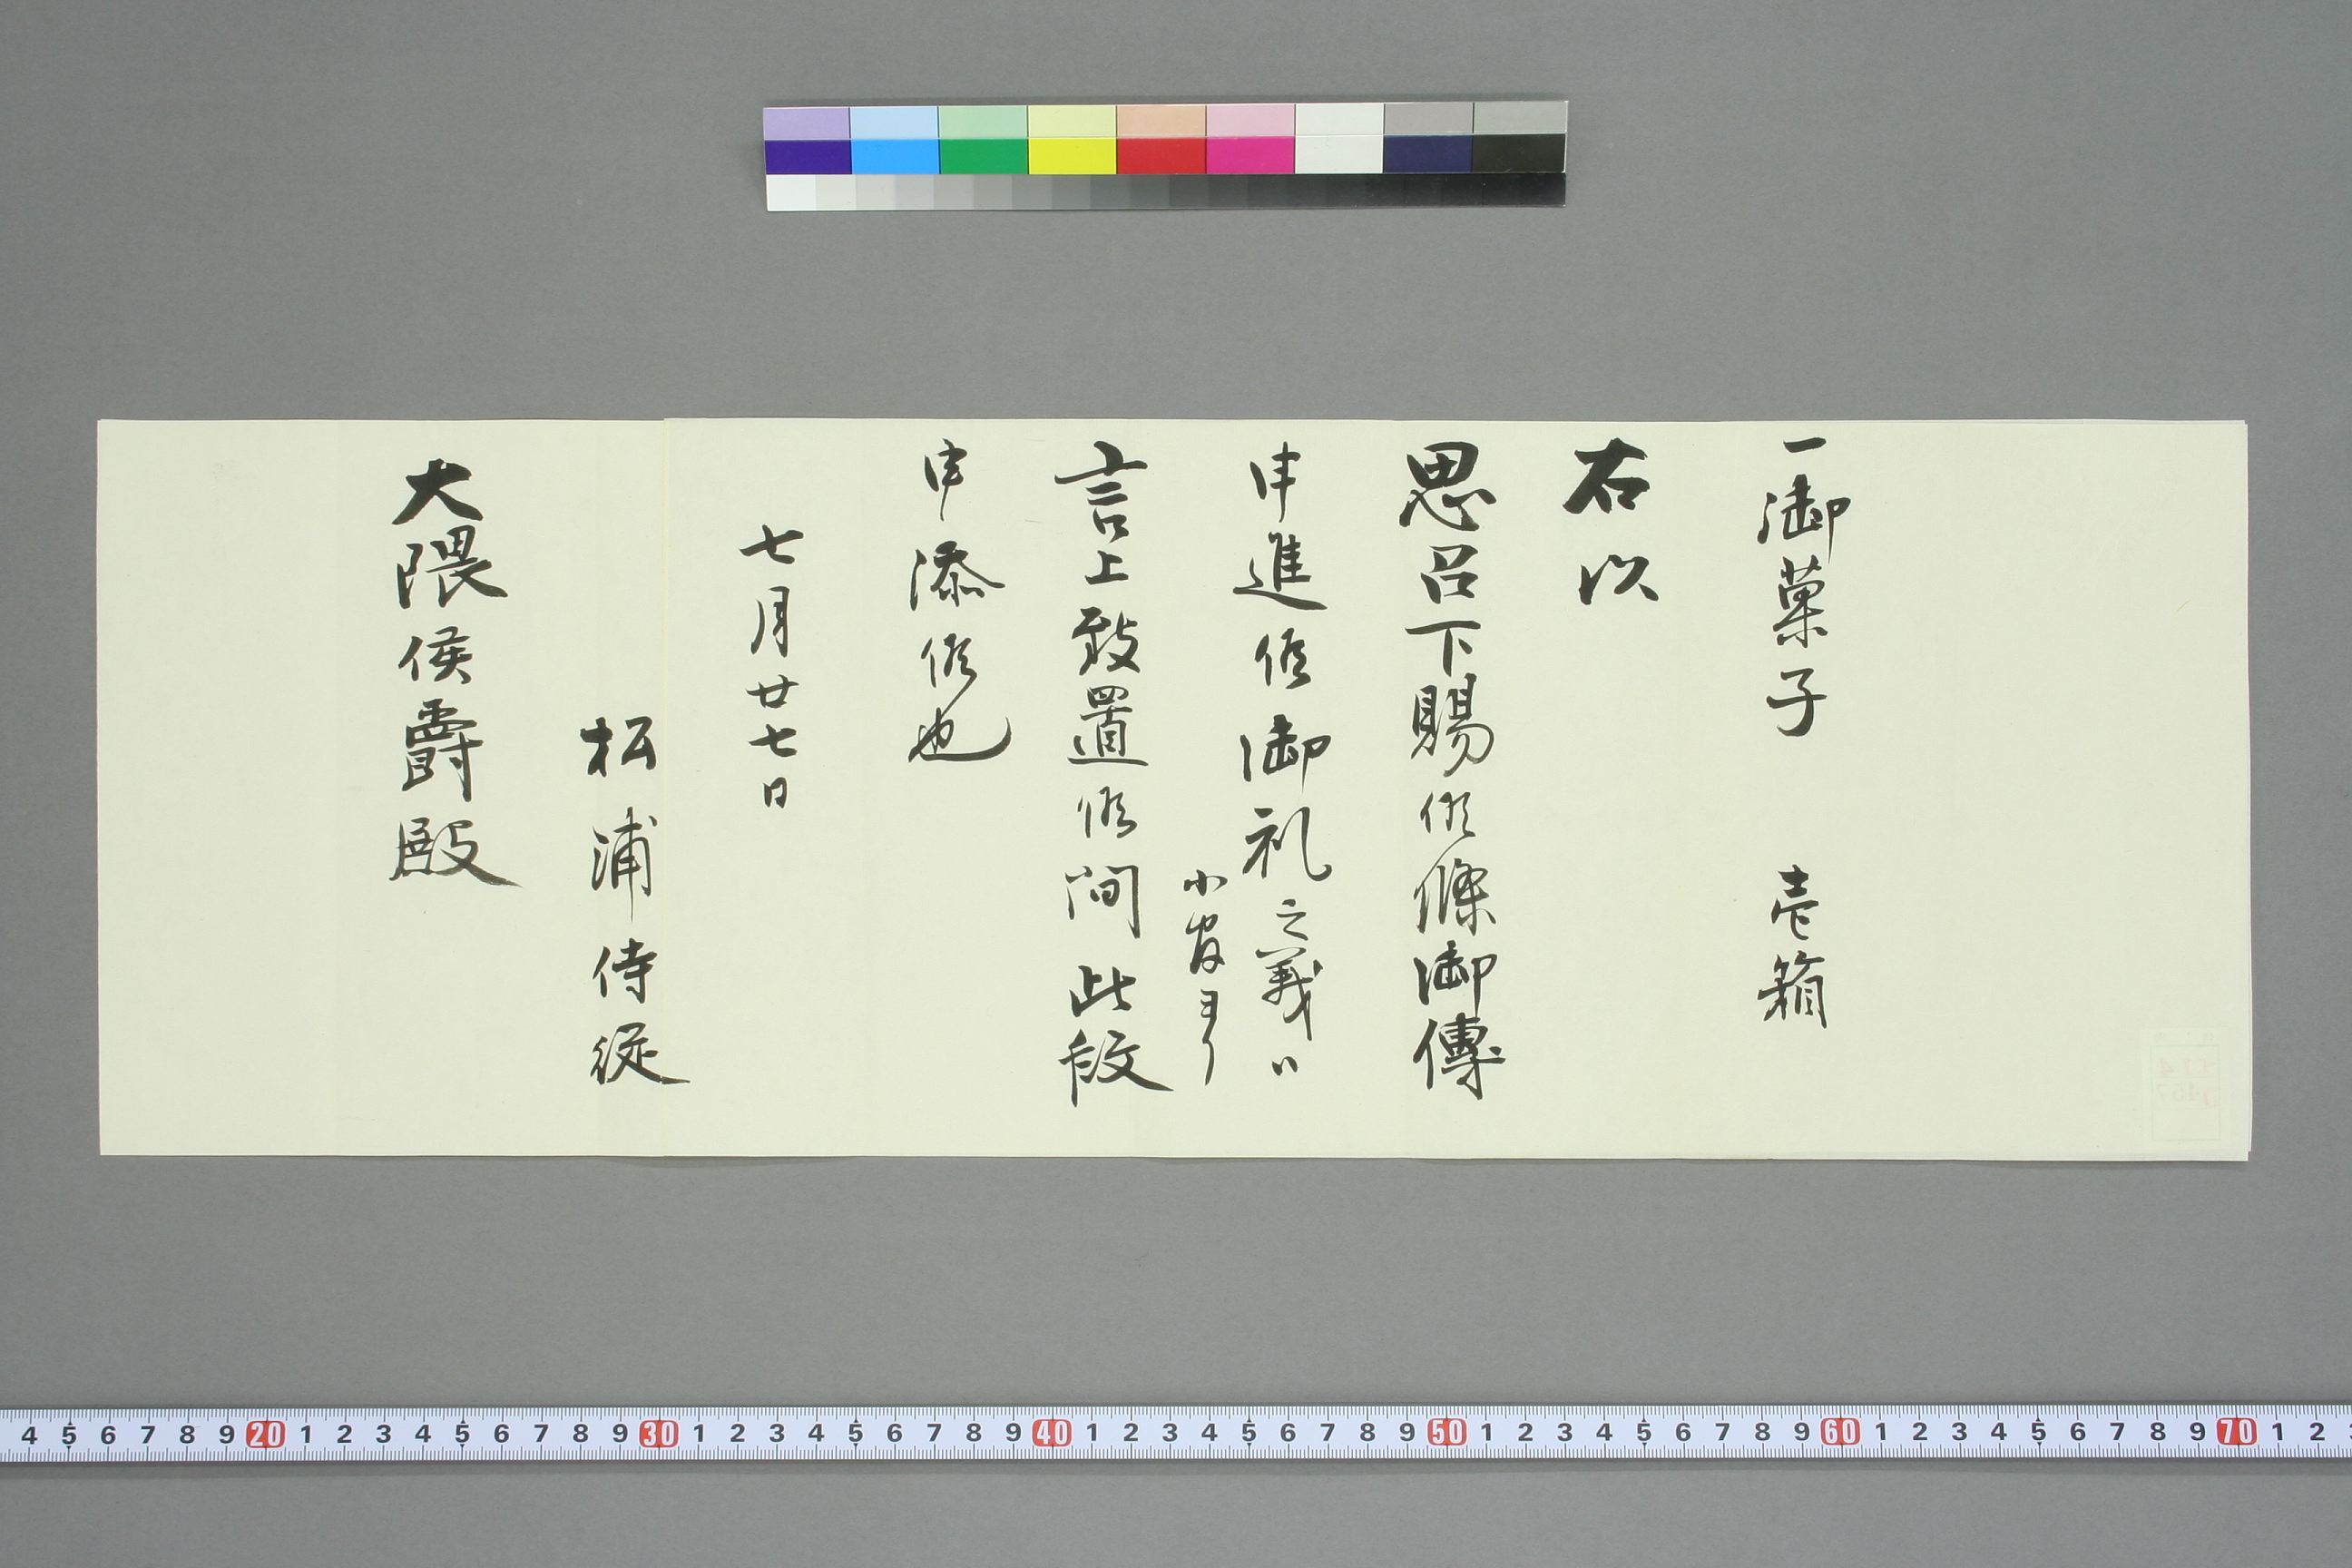 一御菓子　壱箱
右以
思召下賜候條御傳
申進候御礼之義ハ
小官ヨリ
言上致置候間此段
申添候也
七月廿七日
松浦侍従
大隈侯爵殿
4 5 6 7 8 9 20 1 2 3 4 5 6 7 8 9 30 1 2 3 4 5 6 7 8 9 40 1 2 3 4 5 6 7 8 9 50 1 2 3 4 5 6 7 8 9 60 1 2 3 4 5 6 7 8 9 70 1 2